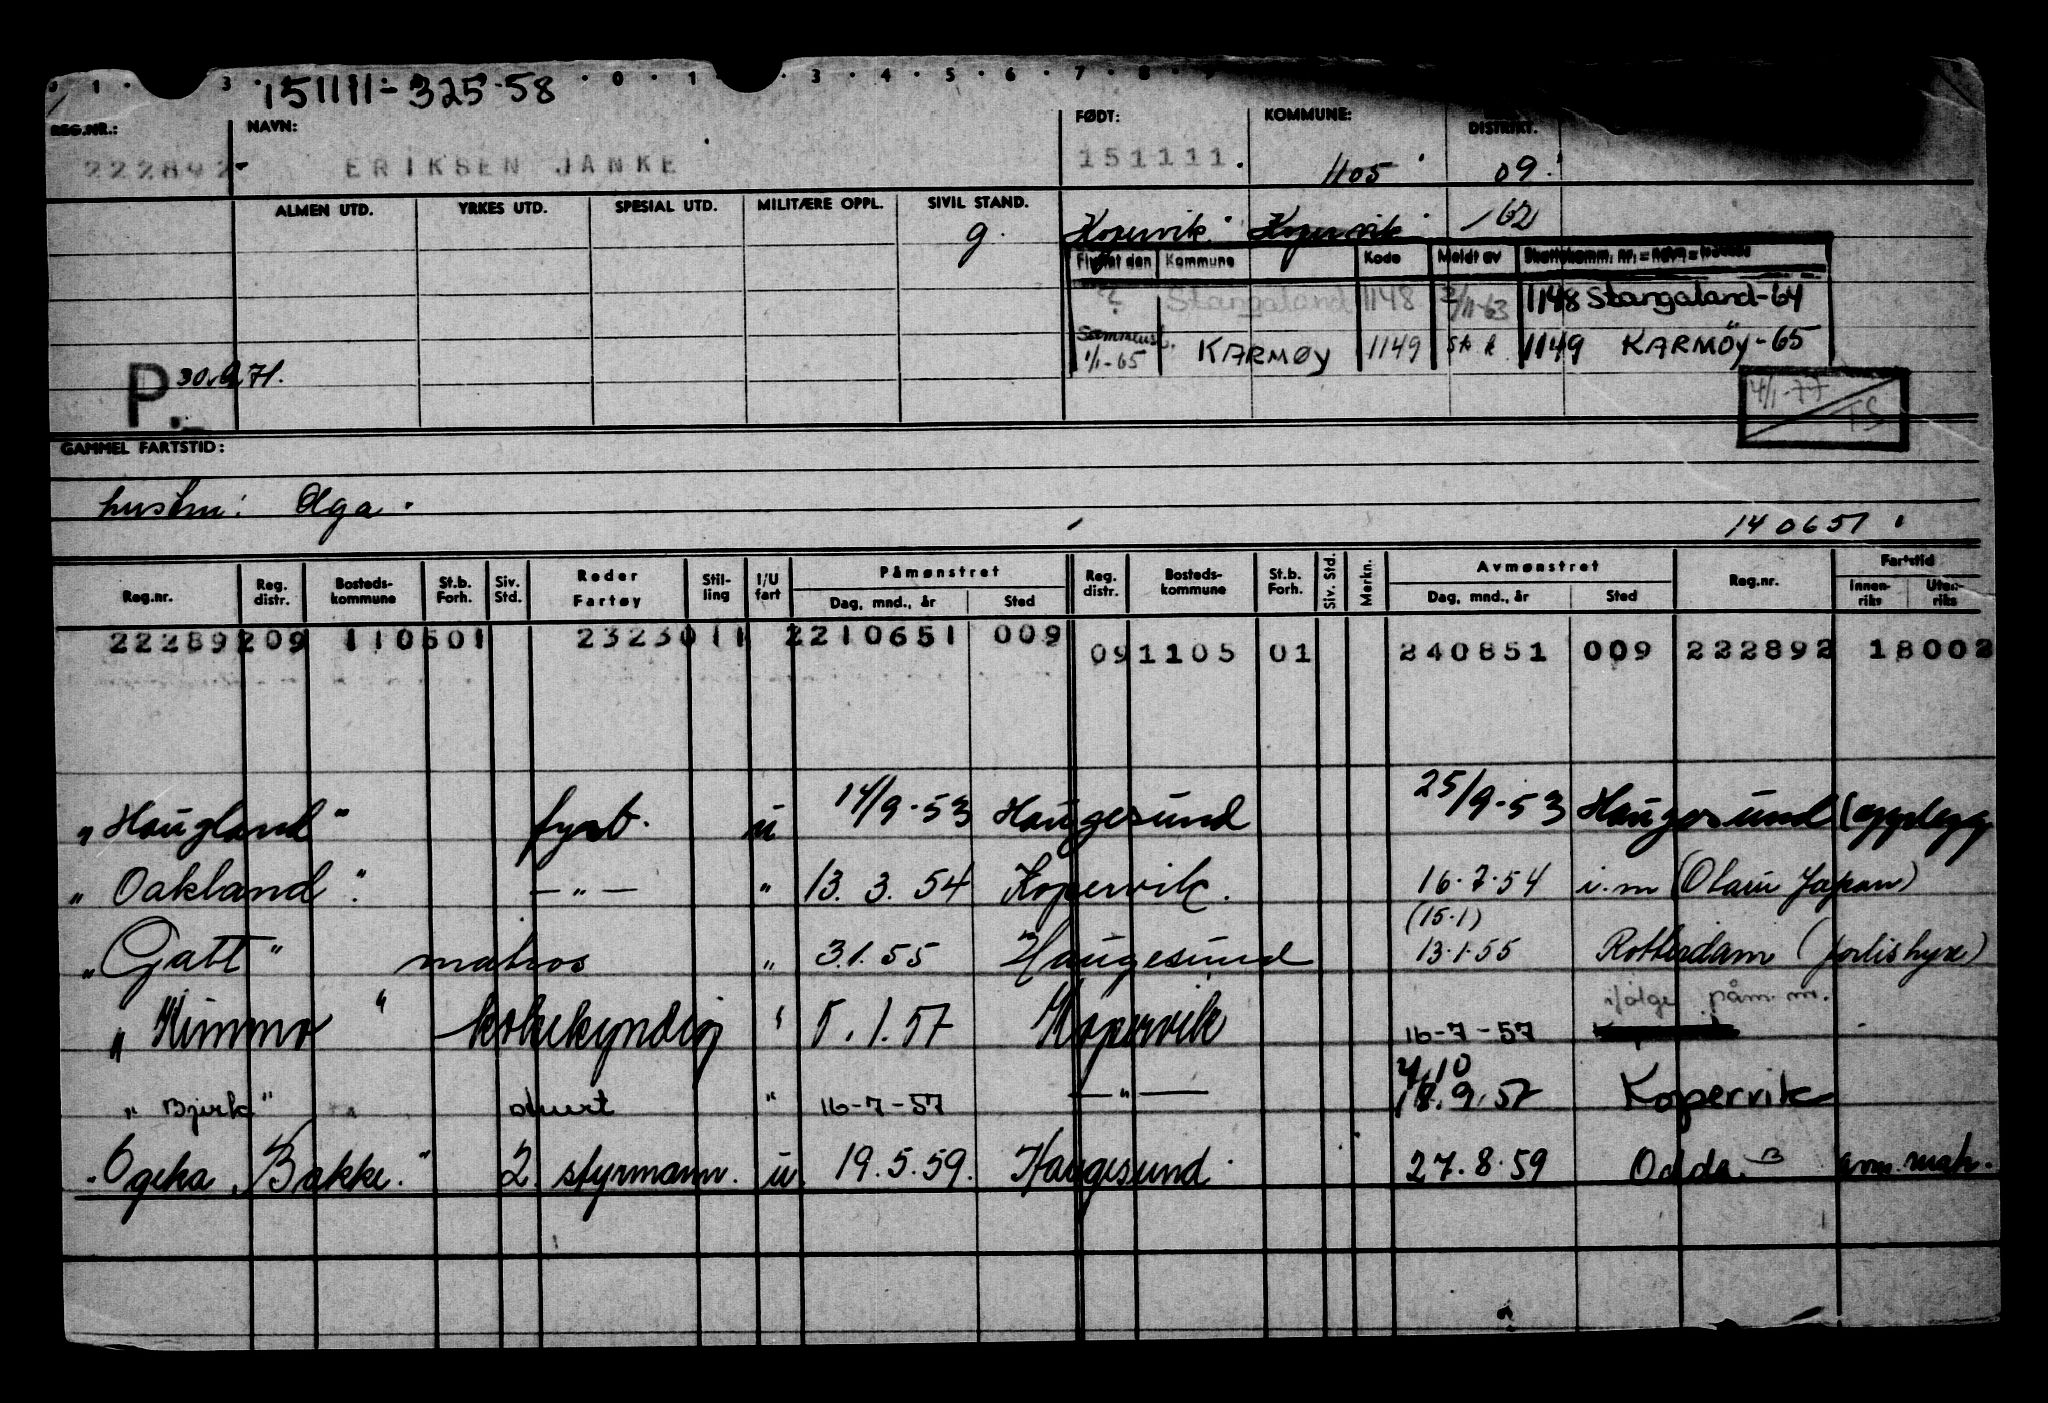 151111-325-58
REG.NR.: NAVN: FØDT: KOMMUNE: DISTRIKT.
222892- ERIKSEN JANKE 151111. 1105 09.
ALMEN UTD. YRKES UTD. SPESIAL UTD. MILITÆRE OPPL. SIVIL STAND.
g. Kopervik. Kopervik. -62
Flyttet den Kommune Kode Meldt av Skattekomm. nr. = navn =
? Stangaland 1148 2/11-63 1148 Stangaland-64
Sammensl. 1/1-65 KARMØY 1149 1149 KARMÖY-65
P. 30.6.71.
4/1-77 TS
GAMMEL FARTSTID:
hustru: Olga.
140651
Reg.nr. Reg. distr. Bosteds-kommune St.b. Forh. Siv. Std. Reder Fartøy Stil-ling I/U fart Påmønstret Dag, mnd., år Sted Reg. distr. Bosteds-kommune St.b. Forh. Siv. Std. Merkn. Avmønstret Dag, mnd., år Sted Reg.nr. Fartstid Innen-riks Uten-riks
222892 09 1105 01 2323011 2210651 009 09 1105 01 240851 009 222892 18002
"Haugland" fyrb. u 14/9-53 Haugesund 25/9-53 Haugesund (opplegg
"Oakland". -"- " 13.3.54 Kopervik. 16.7.54 i.m (Otaru Japan)
(15.1)
"Gatt" matros " 3.1.55 Haugesund 13.1.55 Rotterdam (forlis hyre)
ifølge påm. m.
"Kimmo" kokekyndig " 5.1.57 Kopervik 16-7-57
4/10
"Bjerk" stuert " 16-7-57 -"- 18.9.57 Kopervik
"Ogeka Bakke." 2 styrmann. u. 19.5.59. Haugesund. 27.8.59 Odda